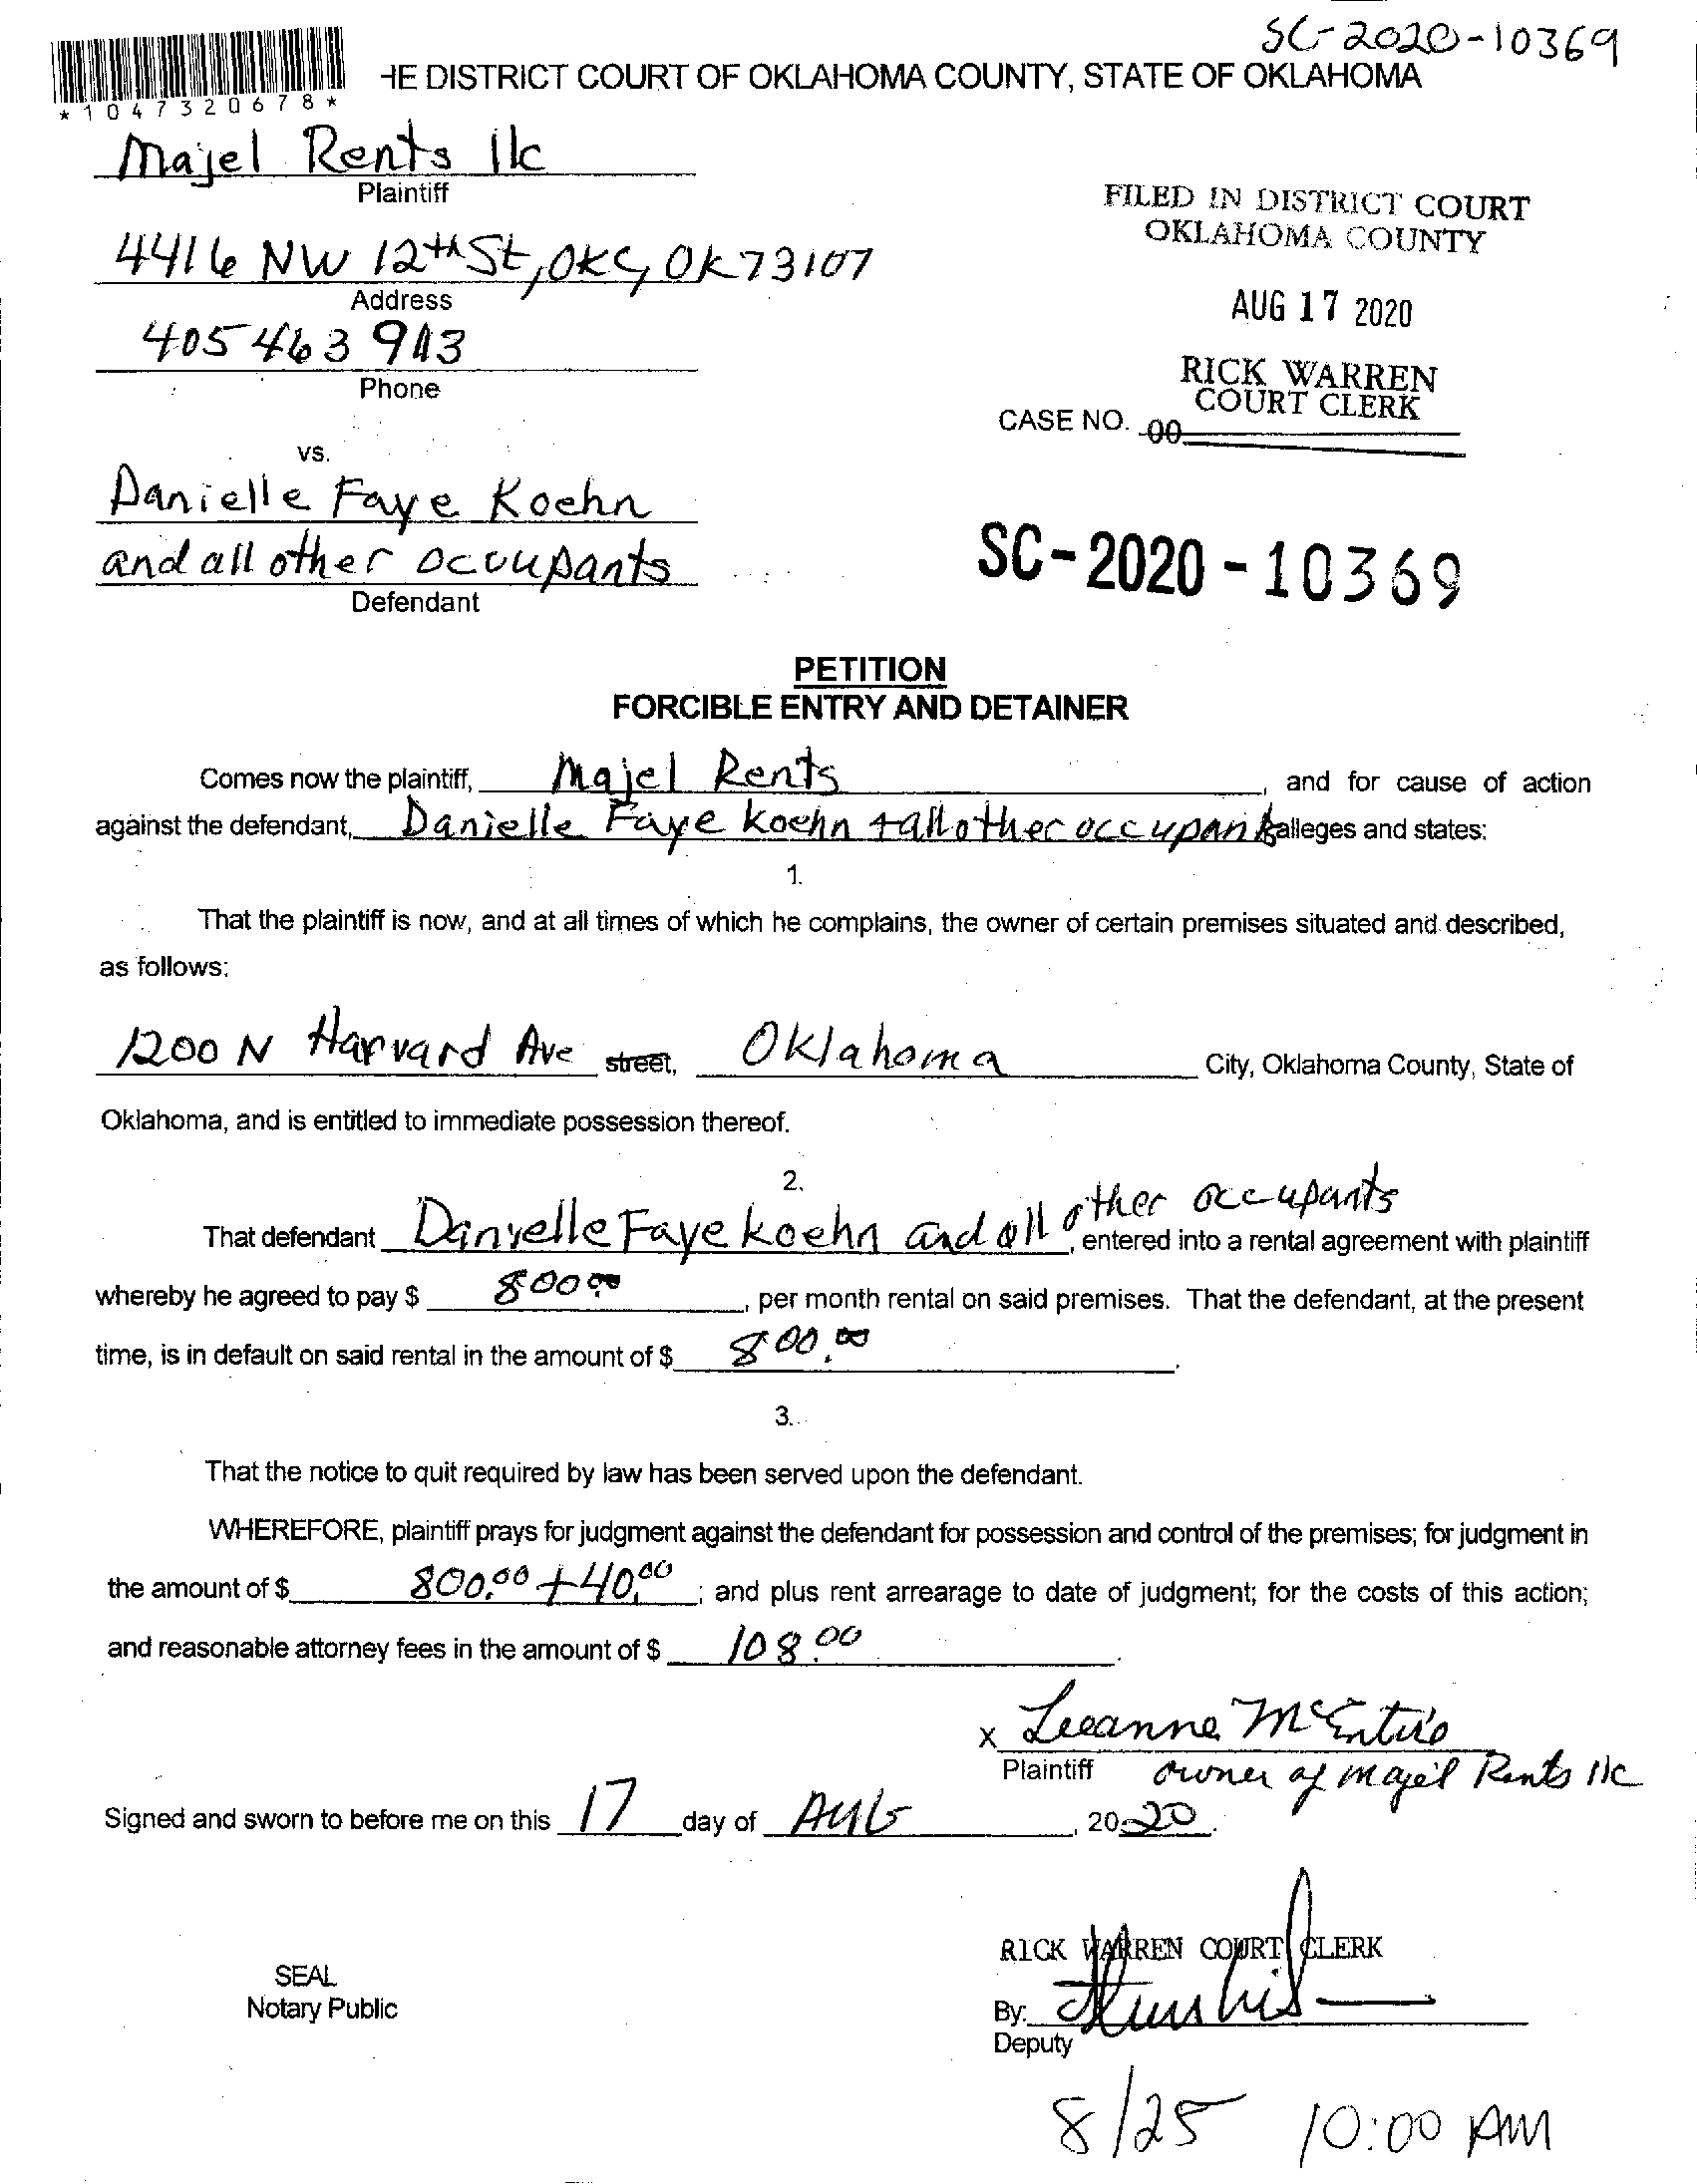 SC-2020-10369
HE DISTRICT COURT OF OKLAHOMA COUNTY, STATE OF OKLAHOMA
*1047320678*
Majel Rents llc
Plaintiff
FILED IN DISTRICT COURT
OKLAHOMA COUNTY
4416 NW 12th St, OKC, OK 73107
Address
AUG 17 2020
405 463 9113
Phone
RICK WARREN
COURT CLERK
CASE NO. 00
vs.
Danielle Faye Koehn
and all other occupants
Defendant
SC-2020-10369
PETITION
FORCIBLE ENTRY AND DETAINER
Comes now the plaintiff, Majel Rents, and for cause of action
against the defendant, Danielle Faye Koehn + all other occupants alleges and states:
1.
That the plaintiff is now, and at all times of which he complains, the owner of certain premises situated and described,
as follows:
1200 N Harvard Ave street, Oklahoma City, Oklahoma County, State of
Oklahoma, and is entitled to immediate possession thereof.
2.
That defendant Danielle Faye Koehn and all other occupants, entered into a rental agreement with plaintiff
whereby he agreed to pay $ 800.00, per month rental on said premises. That the defendant, at the present
time, is in default on said rental in the amount of $ 800.00.
3.
That the notice to quit required by law has been served upon the defendant.
WHEREFORE, plaintiff prays for judgment against the defendant for possession and control of the premises; for judgment in
the amount of $ 800.00 + 40.00; and plus rent arrearage to date of judgment; for the costs of this action;
and reasonable attorney fees in the amount of $ 108.00.
x Leeanne McEntire
Plaintiff owner of Majel Rents llc
Signed and sworn to before me on this 17 day of AUG, 2020.
RICK WARREN COURT CLERK
SEAL
Notary Public
By:
Deputy
8/25 10:00 AM